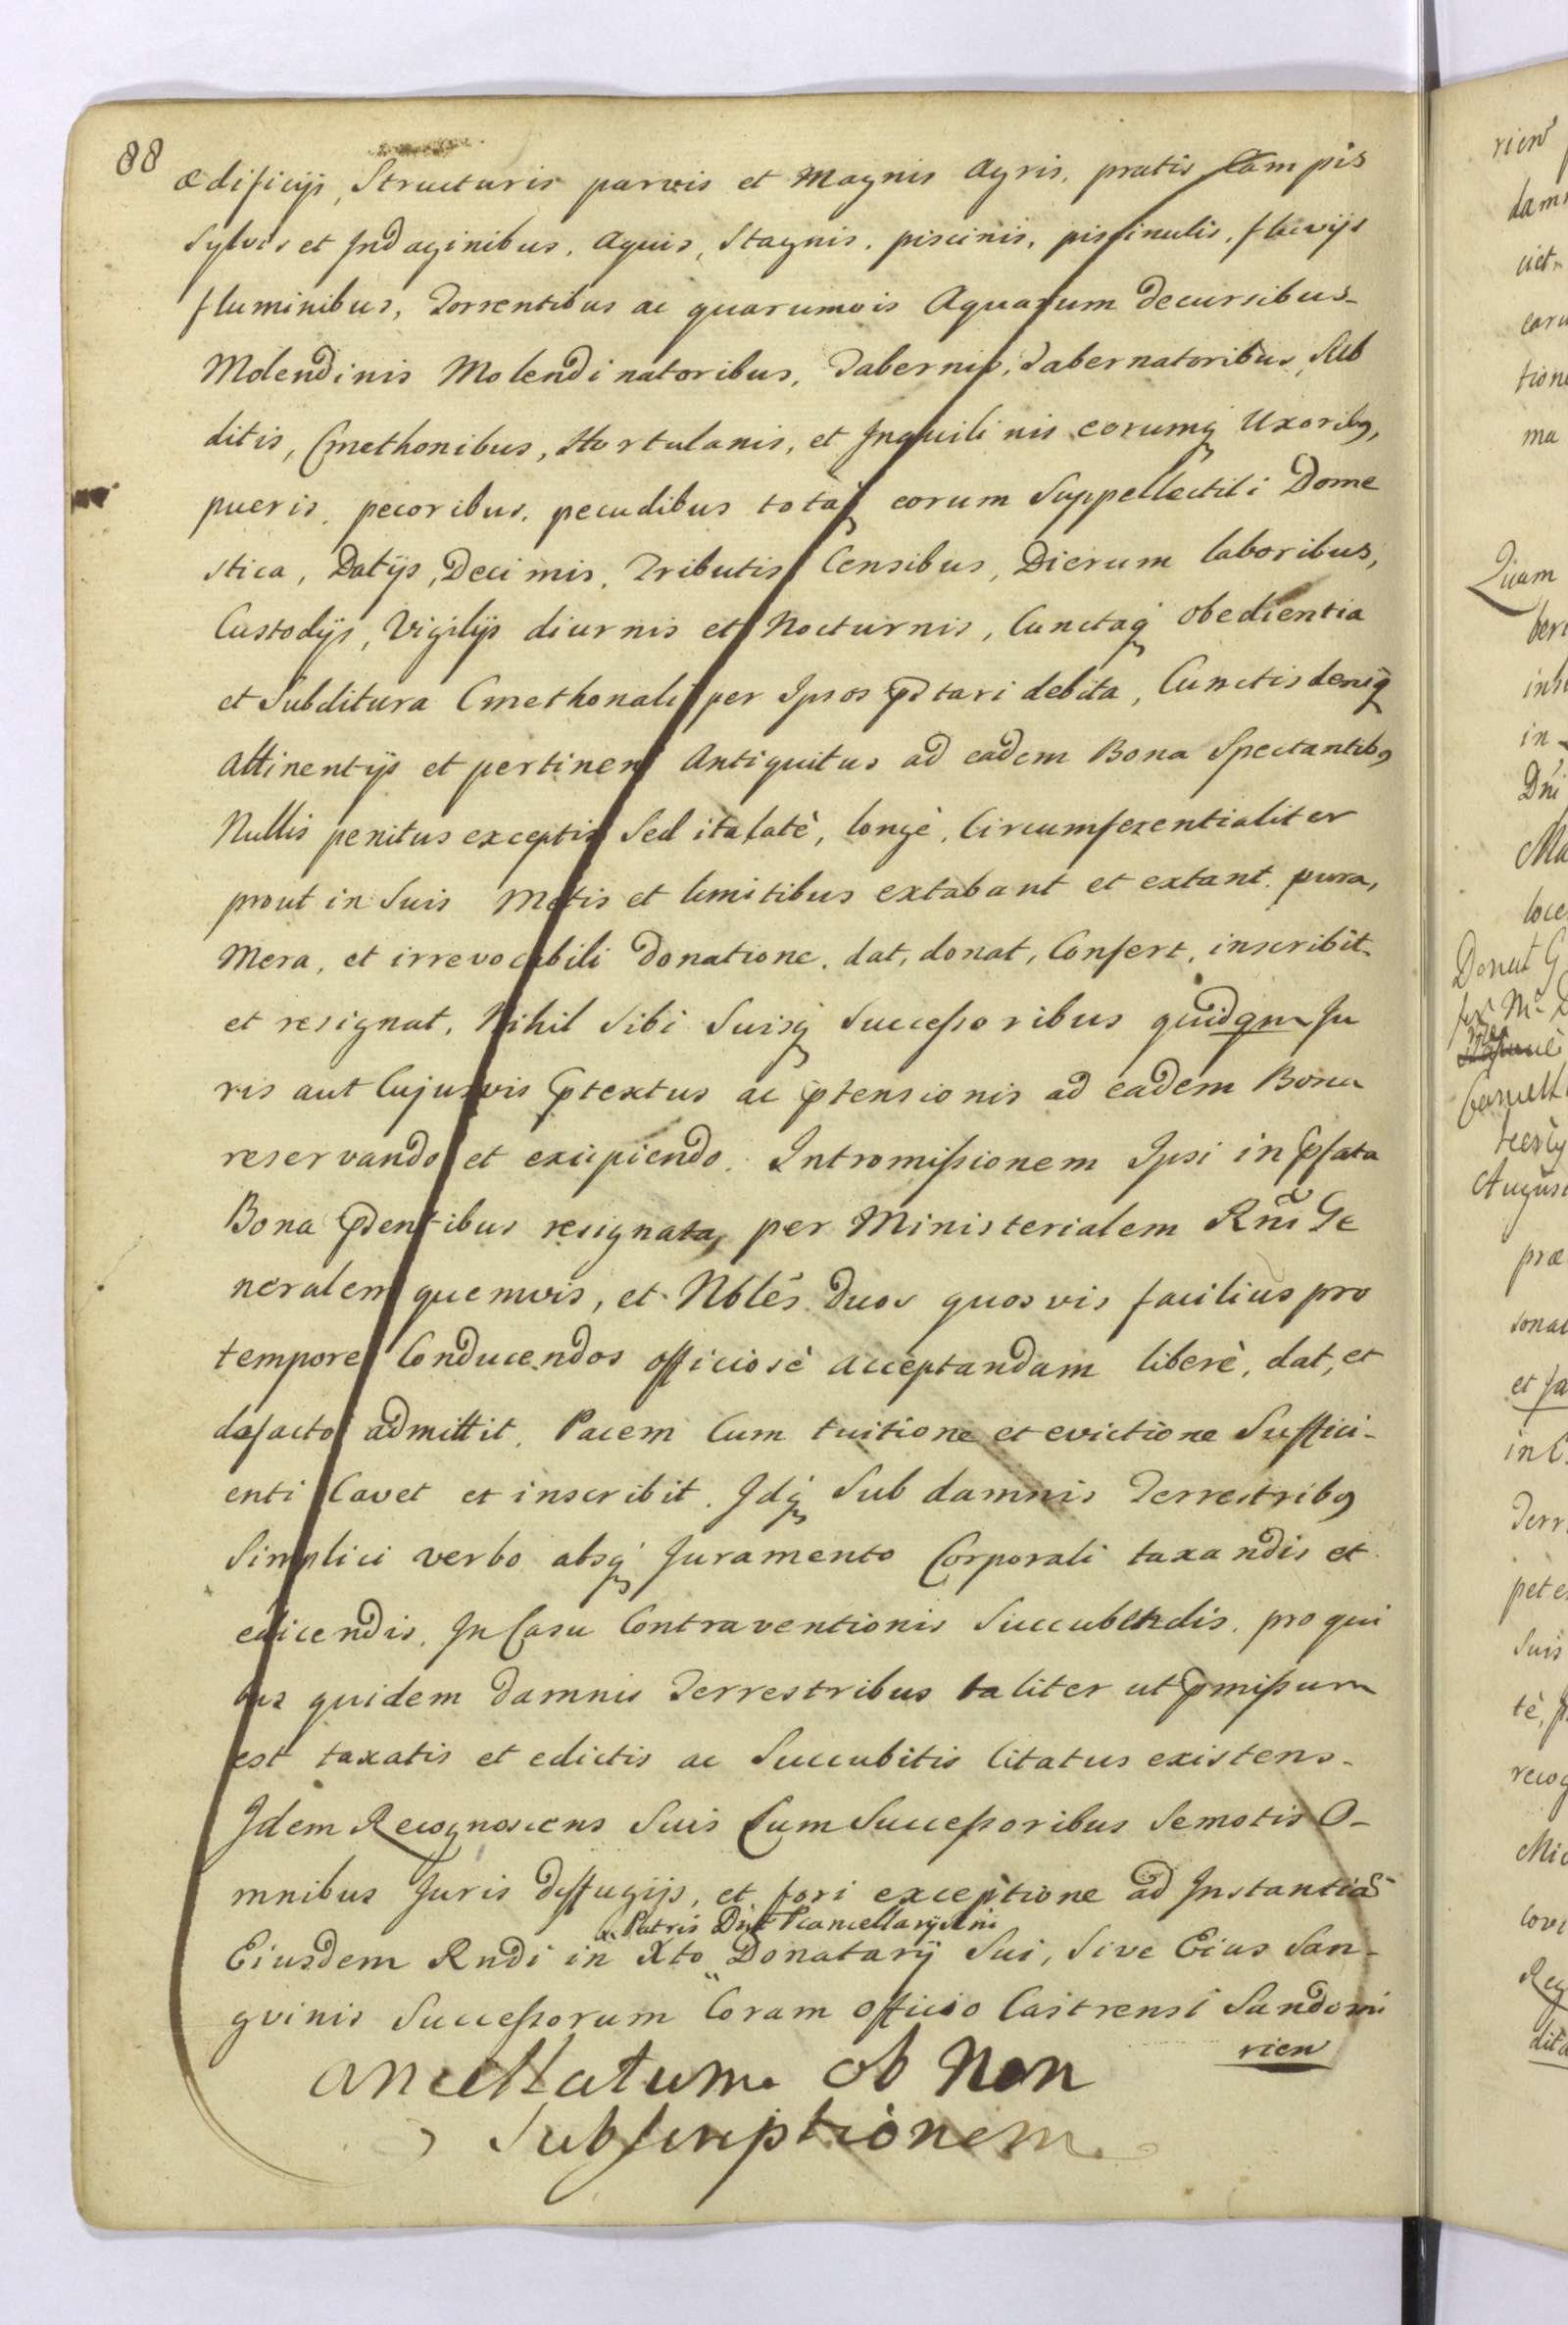 88
ædificijs, Structuris parvis et Magnis Agris, pratis Campis
Sylvis et Indaginibus, Aquis, Stagnis, piscinis, piscinulis, fluvijs
fluminibus, Torrentibus ac quarumvis Aquarum decursibus
Molendinis Molendinatoribus, Tabernis, Tabernatoribus, Sub
ditis, Cmethonibus, Hortulanis, et Inquilinis eorumq Uxoribq,
pueris, pecoribus, pecudibus totaq eorum Suppellectili Dome
stica, Datijs, Decimis, Tributis Censibus, Dierum laboribus,
Custodijs, Vigilijs diurnis et Nocturnis, Cunctaq obedientia
et Subditura Cmethonali per Ipsos pstari debita, Cunctis deniq
attinentijs et pertinen Antiquitus ad eadem Bona Spectantibq
Nullis penitus exceptis Sed ita latè, longè, Circumferentialiter
prout in Suis Metis et limitibus extabant et extant. pura,
Mera, et irrevocabili Donatione, dat, donat, Confert, inscribit
et resignat, Nihil Sibi Suisq Successoribus quidqm Ju
ris aut Cujusvis ptextus ac ptensionis ad eadem Bona
reservando et excipiendo. Intromissionem Ipsi in pfata
Bona psentibus resignata, per Ministerialem Rni Ge
neralem quemvis, et Nobles Duos quosvis facilius pro
tempore Conducendos officiosè acceptandam liberè, dat, et
defacto admittit, Pacem Cum tuitione et evictione Suffici-
enti Cavet et inscribit. Idq Sub damnis Terrestribq
Simplici verbo absq Juramento Corporali taxandis et
edicendis, In Casu Contraventionis Succubendis, pro qui
bus quidem Damnis Terrestribus taliter ut pmissum
est taxatis et edictis ac Succubitis Citatus existens
Idem Recognoscens Suis Cum Successoribus Semotis O-
mnibus Juris diffugijs, et fori exceptione ad Instantias
Patris Dni
Eiusdem Rndi in Xto Donatarij Sui, Sive Eius San-
gvinis Successorum Coram officio Castrensi Sandomi
rien
ancellatum ob Non
Subscriptionem
rien
Quam
in
Dni
Donat G
Augus
præ
sonat
et fa
in C
Suis
recog